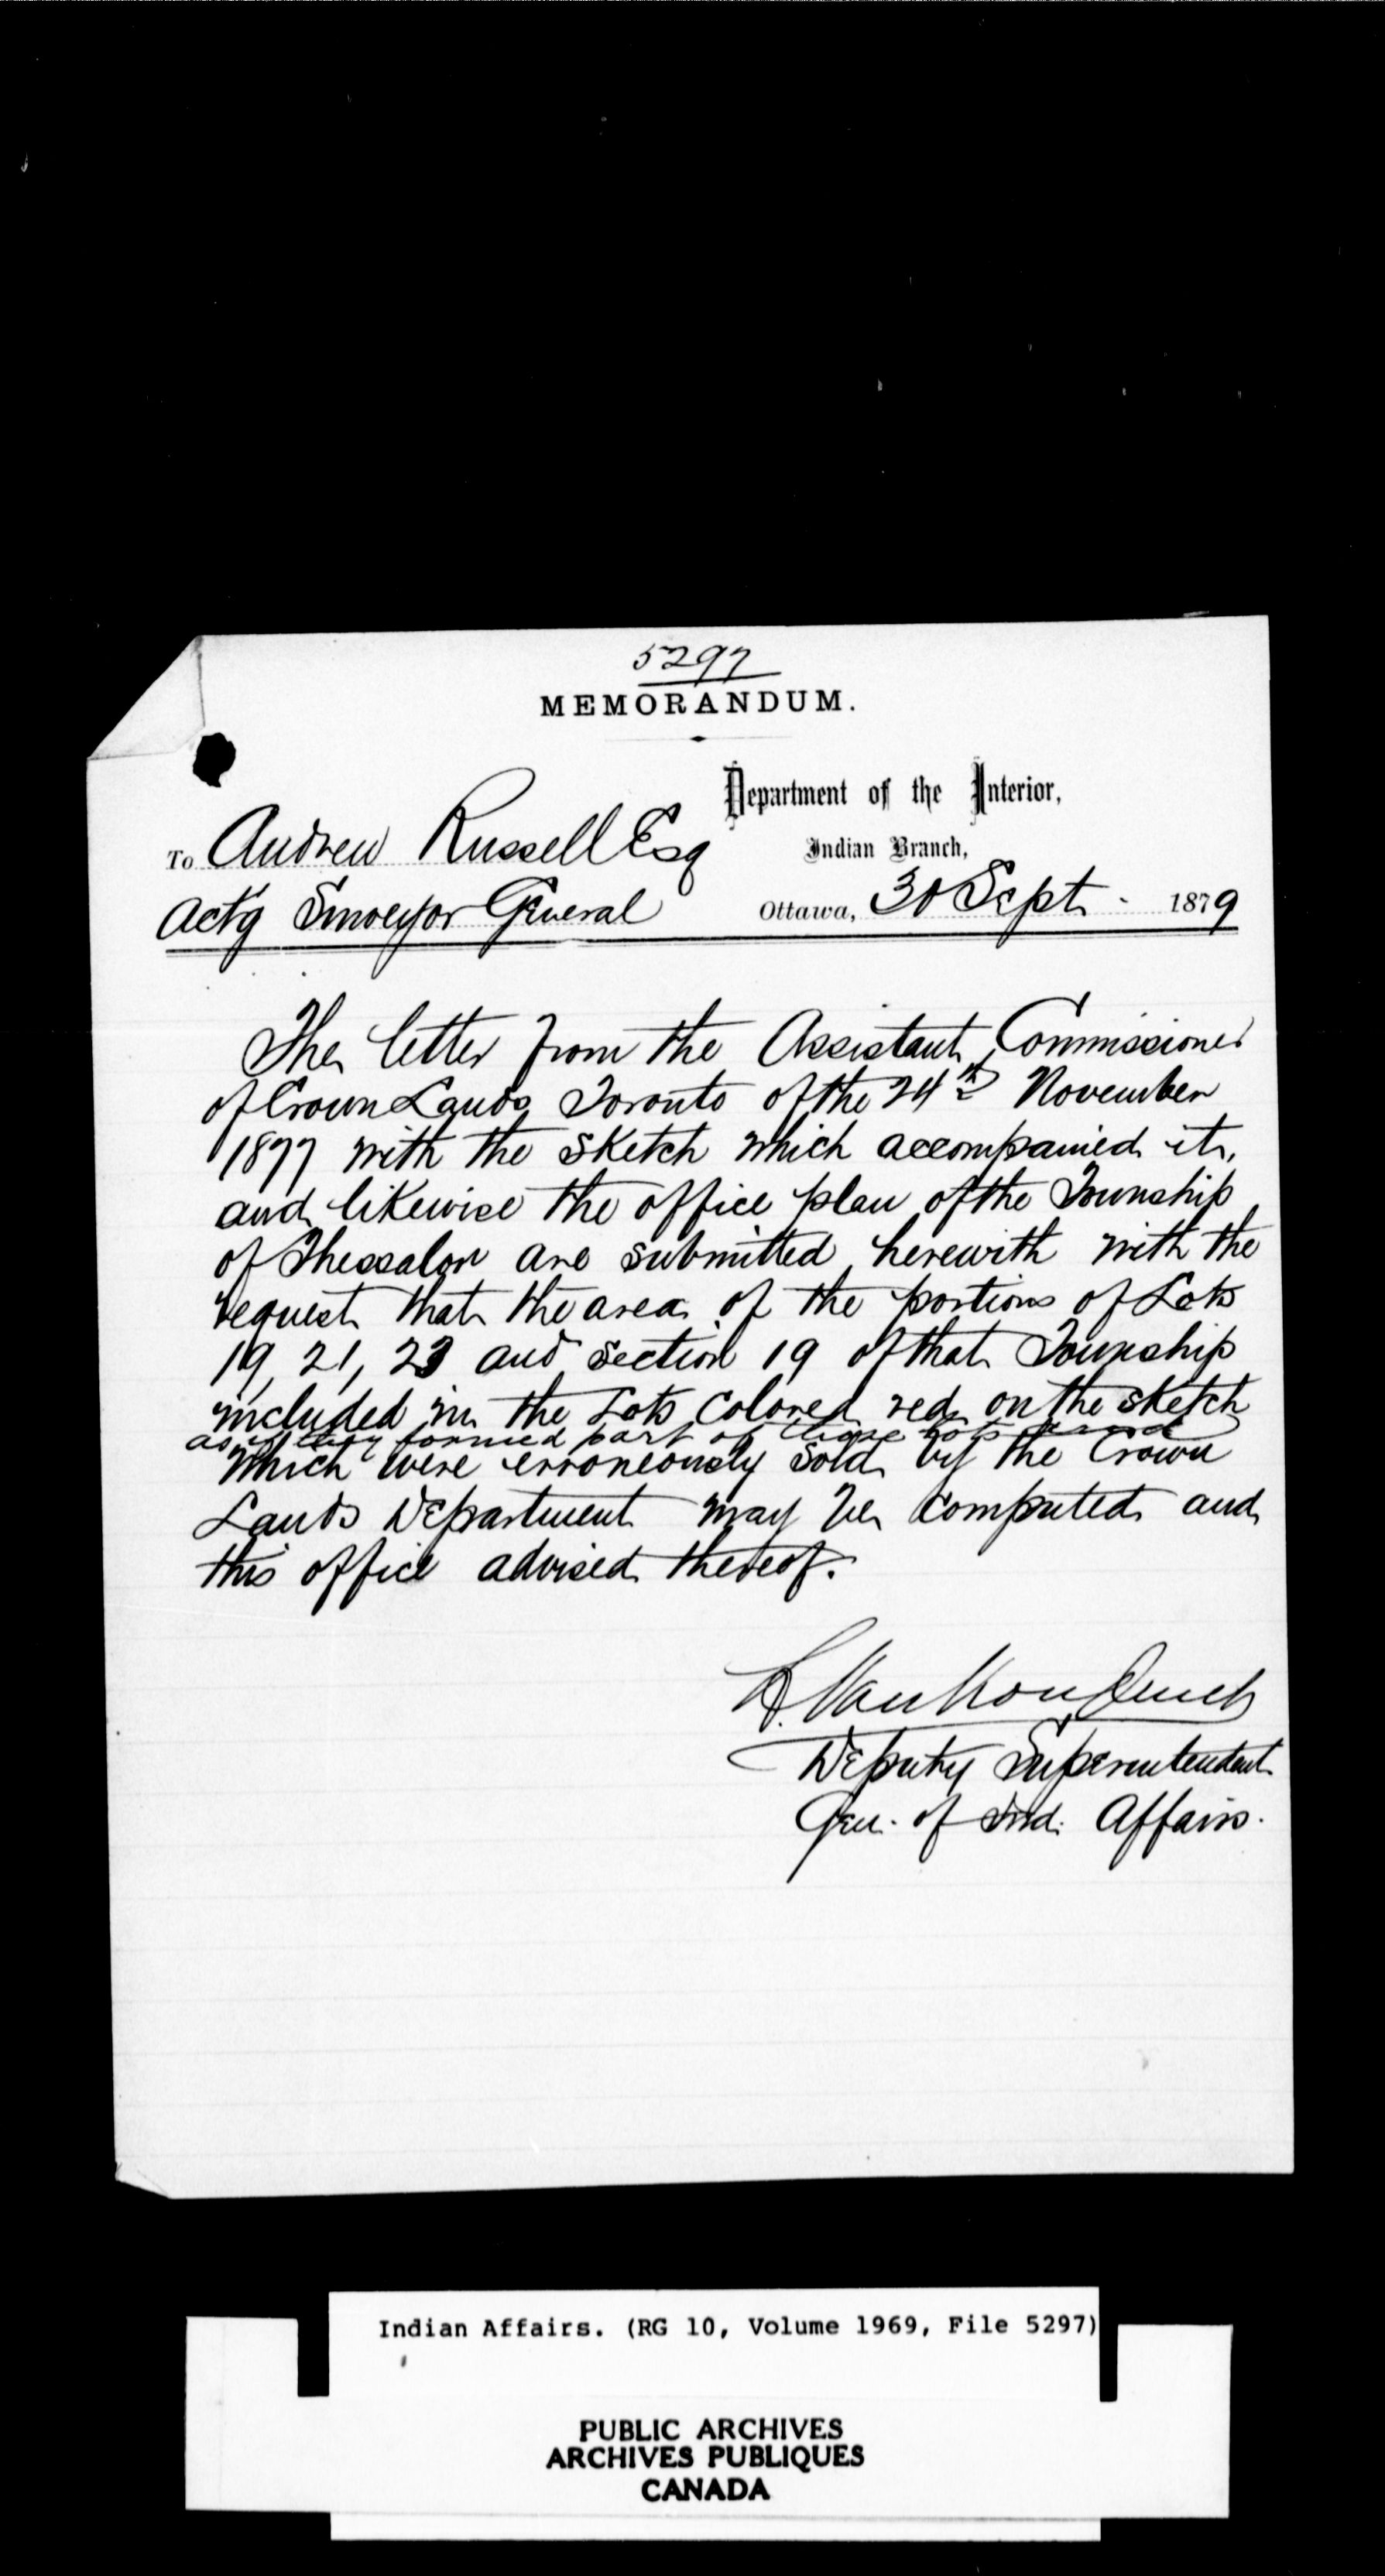 5297
MEMORANDUM.
Department of the Interior,
Indian Branch,
To Andrew Russell Esq
Act'g Surveyor General
Ottawa, 30 Sept. 1879
The letter from the Assistant Commissioner
of Crown Lands Toronto of the 24th November
1877 with the sketch which accompanied it,
and likewise the office plan of the Township
of Thessalon are submitted herewith with the
request that the area of the portions of Lots
19, 21, 23 and section 19 of that Township
included in the Lots colored red on the sketch
as if they formed part of those lots and
which were erroneously sold by the Crown
Lands Department may be computed and
this office advised thereof.
L. VanKoughnet
Deputy Superintendent
Gen. of Ind. Affairs.
Indian Affairs. (RG 10, Volume 1969, File 5297)
PUBLIC ARCHIVES
ARCHIVES PUBLIQUES
CANADA